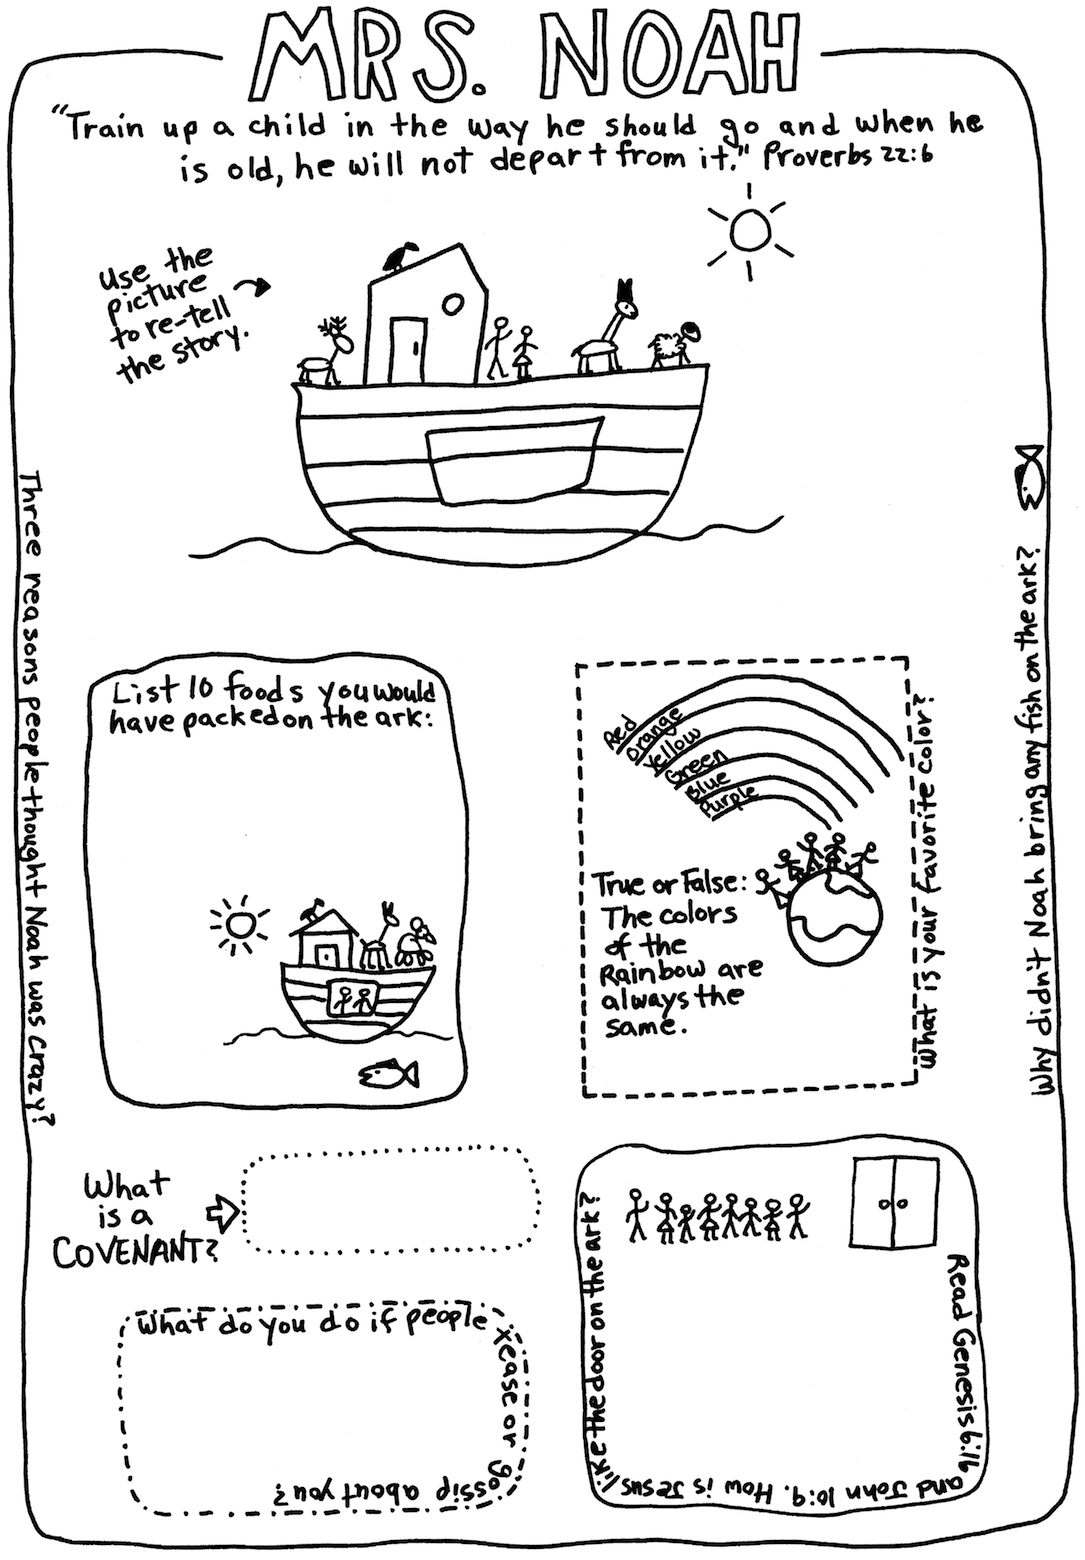 MRS. NOAH
"Train up a child in the way he should go and when he
is old, he will not depart from it." Proverbs 22:6
Use the
picture
to re-tell
the story.
Three reasons people thought Noah was crazy?
Why didn't Noah bring any fish on the ark?
List 10 foods you would
have packed on the ark:
Red
Orange
Yellow
Green
Blue
Purple
True or False:
The colors
of the
Rainbow are
always the
same.
What is your favorite color?
What
is a
COVENANT?
What do you do if people
tease or
gossip about you?
Read Genesis 6:16
and John 10:9. How is Jesus
like the door on the ark?